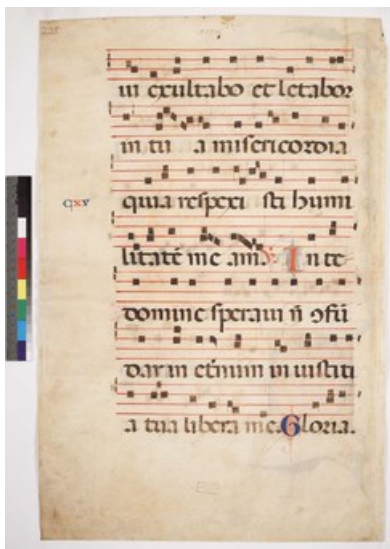 in exultabo et letabor
in tu a misericordia
quia respexi sti humi
litatē me am ℣. In te
domine speraui n̄ ↄfū
dar in etn̄um in iustiti
a tua libera me. Gloria.
cxv